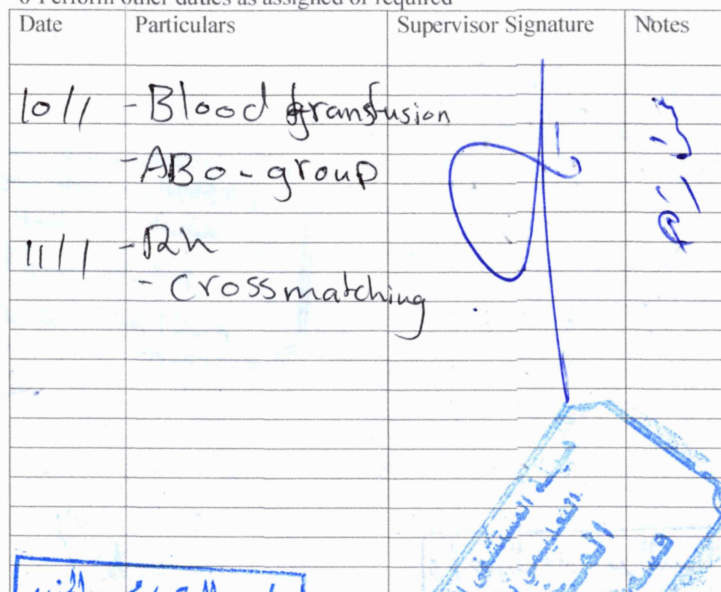 6 Perform other duties as assigned or required
Date Particulars Supervisor Signature Notes
10/1 - Blood transfusion
- ABo - group
11/1 - Rh
- Crossmatching
المستشفى
التعليمي
قسم